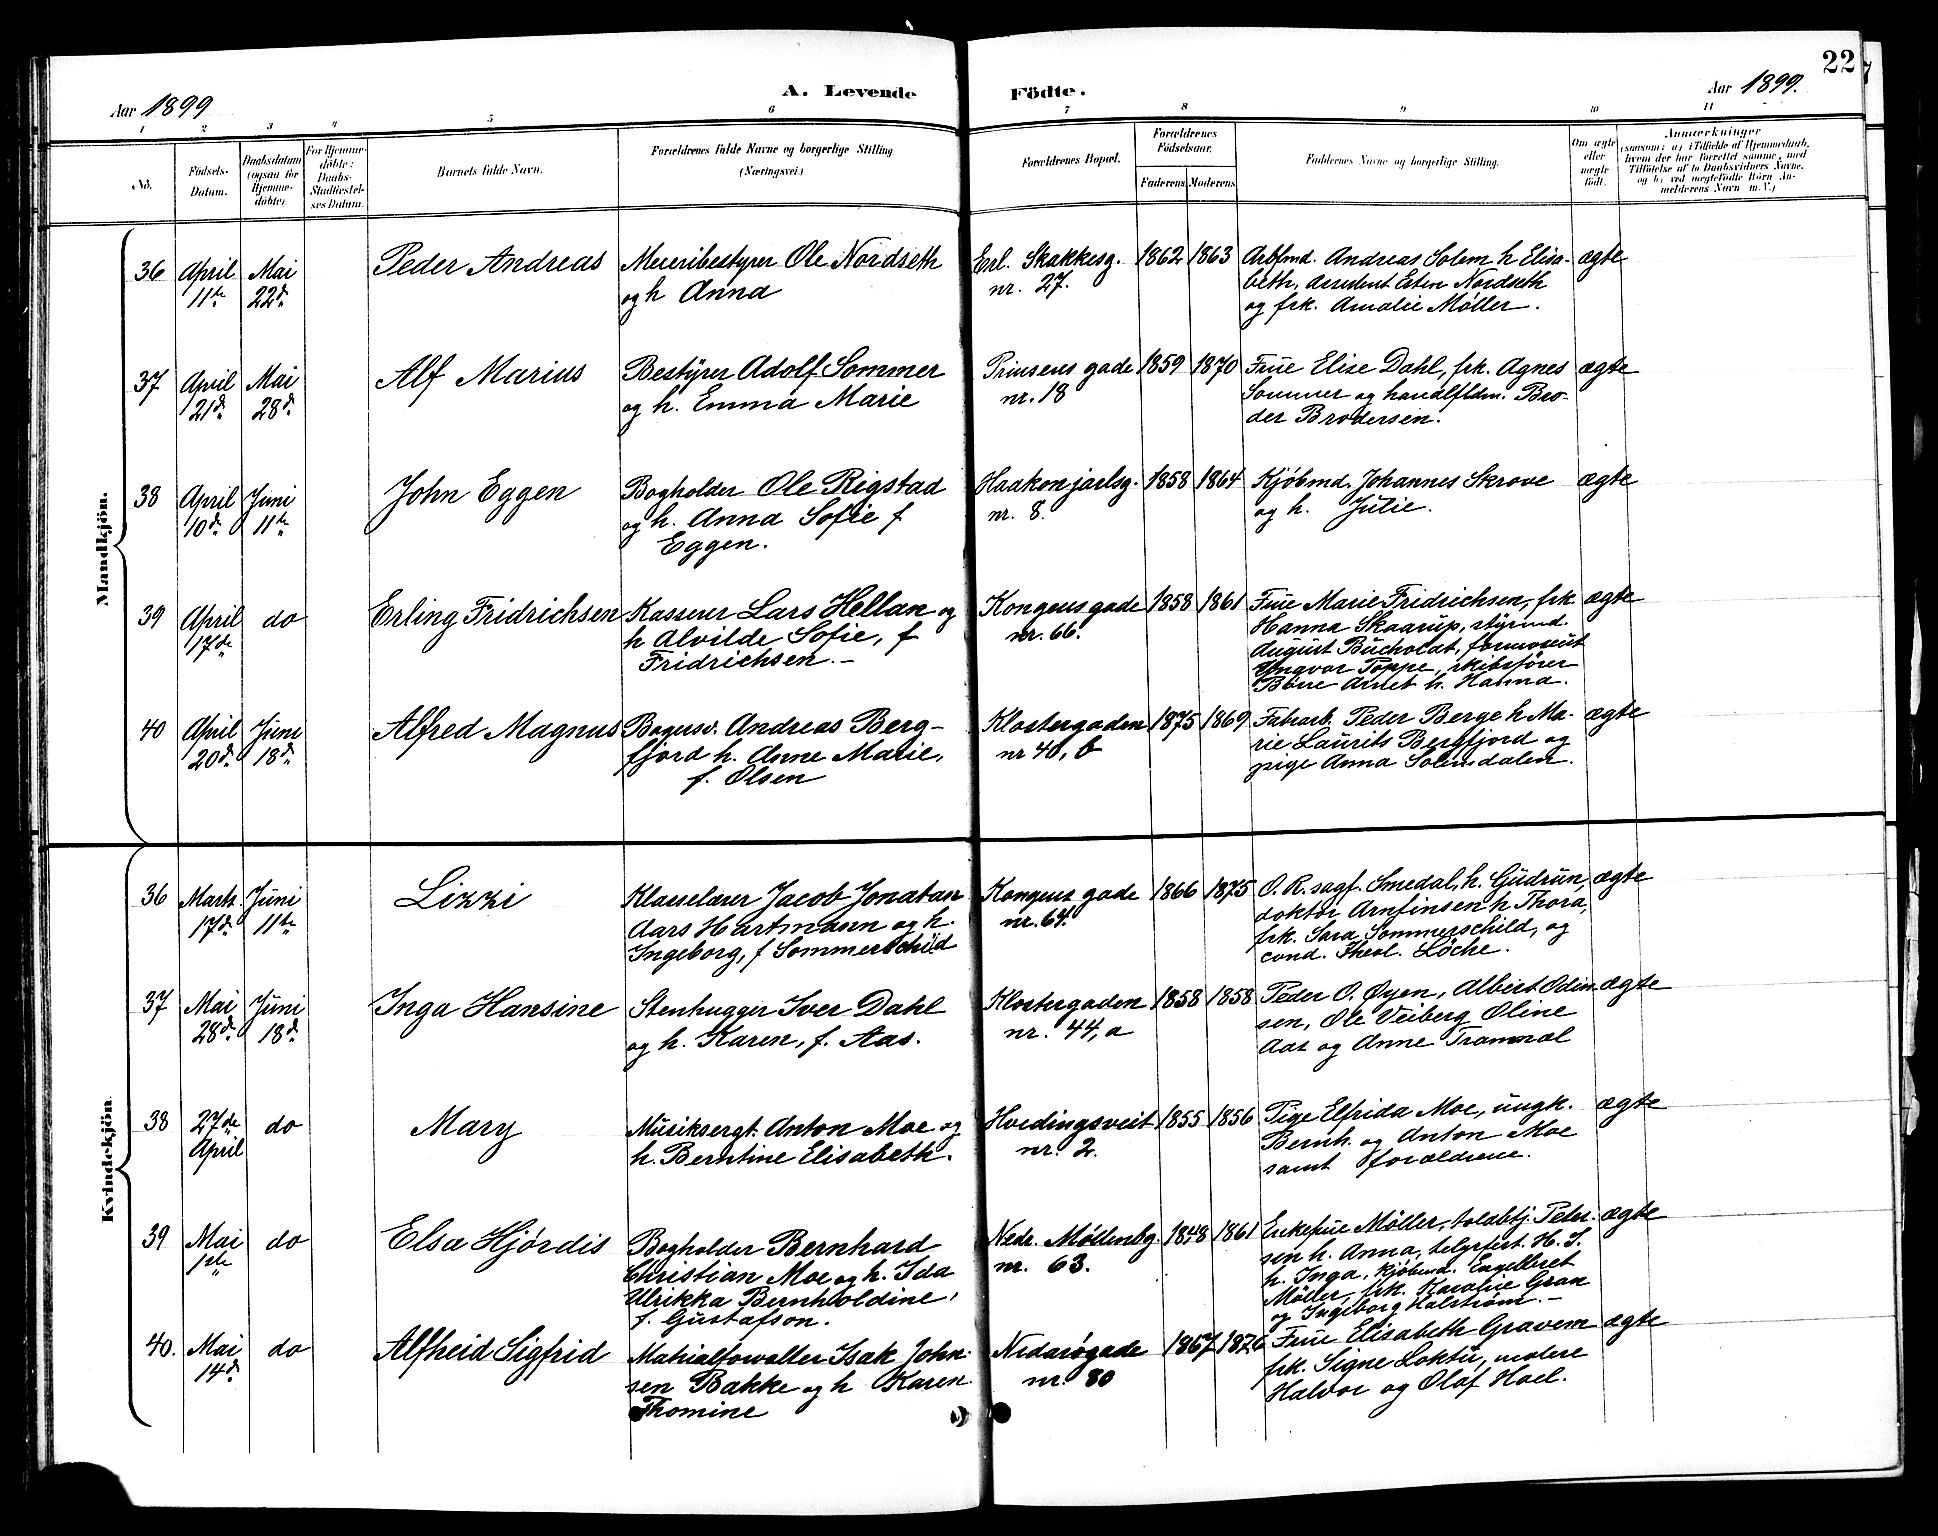 22
Aar 1899
A. Levende Födte.
Aar 1899.
1 2 3 4 5 6 7 8 9 10 11
No.
Födsels-
Datum.
Daabsdatum
(ogsaa for
Hjemme-
døbte).
For Hjemme-
døbte:
Daabs-
Stadfæstel-
ses Datum.
Barnets fulde Navn.
Forældrenes fulde Navne og borgerlige Stilling
(Næringsvei.)
Forældrenes Bopæl.
Forældrenes
Födselsaar.
Faderens Moderens
Faddernes Navne og borgerlige Stilling.
Om ægte
eller
uægte
født.
Anmærkninger
(saasom: a) i Tilfælde af Hjemmedaab,
hvem der har forrettet samme, med
Tilføielse af to Daabsvidners Navne,
og b) ved uægtefødte Börn An-
melderens Navn m. V.)
Mandkjön.
36 April 11te Mai 22d. Peder Andreas
Meieribestyrer Ole Nordseth
og h Anna
Erl. Skakkesg.
nr. 27.
1862 1863
Arbfmd. Andreas Solem h Elisa-
beth, assistent Esten Nordseth
og frk. Amalie Møller.
ægte
37 April 21d. Mai 28d. Alf Marius
Bestyrer Adolf Sommer
og h. Emma Marie
Prinsens gade
nr. 18
1859 1870
Frue Elise Dahl, frk. Agnes
Sommer og handlsfldm. Bro-
der Brodersen.
ægte
38 April 10d. Juni 11te John Eggen
Bogholder Ole Rigstad
og h. Anna Sofie f
Eggen.
Haakonjarlsg.
nr. 8.
1858 1864
Kjöbmd. Johannes Skrove
og h. Julie.
ægte
39 April 17de do Erling Fridrichsen
Kasserer Lars Hellan og
h Alvilde Sofie, f
Fridrichsen.-
Kongens gade
nr. 66.
1858 1861
Frue Marie Fridrichsen, frk
Hanna Skaarup, styrmd.
August Bucholdt,
Ingvar Toppe, skibsfører
h. Hanna.
ægte
40 April 20d. Juni 18d. Alfred Magnus
Bagersv. Andreas Berg-
fjord h. Anne Marie,
f. Olsen
Klostergaden
nr 40, b
1875 1869
Fabrarb. Peder Berge h Ma-
rie Laurits Bergfjord og
pige Anna Solemdalen.
ægte
Kvindekjön.
36 Marts 17d. Juni 11te Lizzi
Klasselærer Jacob Jonatan
Aars Hartmann og h.
Ingeborg, f Sommerschild
Kongens gade
nr. 64.
1866 1875
O. R. sagf. Smedal, h. Gudrun,
doktor Arnfinsen h Thora,
frk. Sara Sommerschild, og
cand. Theol. Løche.
ægte
37 Mai 28d. Juni 18d. Inga Hansine
Stenhugger Iver Dahl
og h. Karen, f. Aas.
Klostergaden
nr. 44, a
1858 1858
Peder O. Øyen, Albert Odin-
sen, Ole Veiberg Oline
Aas og Anne Tramsal
ægte
38 27de April do Mary
Musiksergt. Anton Moe og
h. Berntine Elisabeth.
Hvedingsveit
nr. 2.
1855 1856
Pige Elfrida Moe, ungk.
Bernh. og Anton Moe
samt forældrene.
ægte
39 Mai 1ste do Elsa Hjördis
Bogholder Bernhard
Christian Moe og h. Ida
Ulrikka Bernholdine,
f. Gustafson.
Nedr. Møllenbg.
nr. 63.
1848 1861
Enkefrue Møller, toldbtj. Peter-
sen h. Anna, H. J.
h. Inga, kjöbmd. Engelbret
Møller, frk. Karolie Gran
og Ingeborg Halström.-
ægte
40. Mai 14d. do Alfheid Sigfrid
Matrialforvalter Isak John-
sen Bakke og h Karen
Thomine
Nidarøgade
nr. 80
1867 1876
Frue Elisabeth Gravem
frk. Signe Loktu, malere
Halvor og Olaf Hoel.
ægte